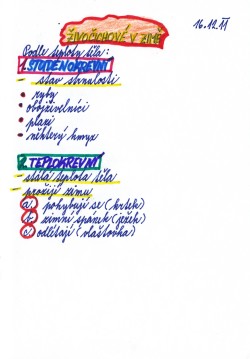 16.12.11
ŽIVOČICHOVÉ V ZIMĚ
Podle teploty těla:
1. STUDENOKREVNÍ
- stav strnulosti
• ryby
• obojživelníci
• plazi
• některý hmyz
2. TEPLOKREVNÍ
- stálá teplota těla
- prožijí zimu
a, pohybují se (krtek)
b, zimní spánek (ježek)
c, odlétají (vlaštovka)